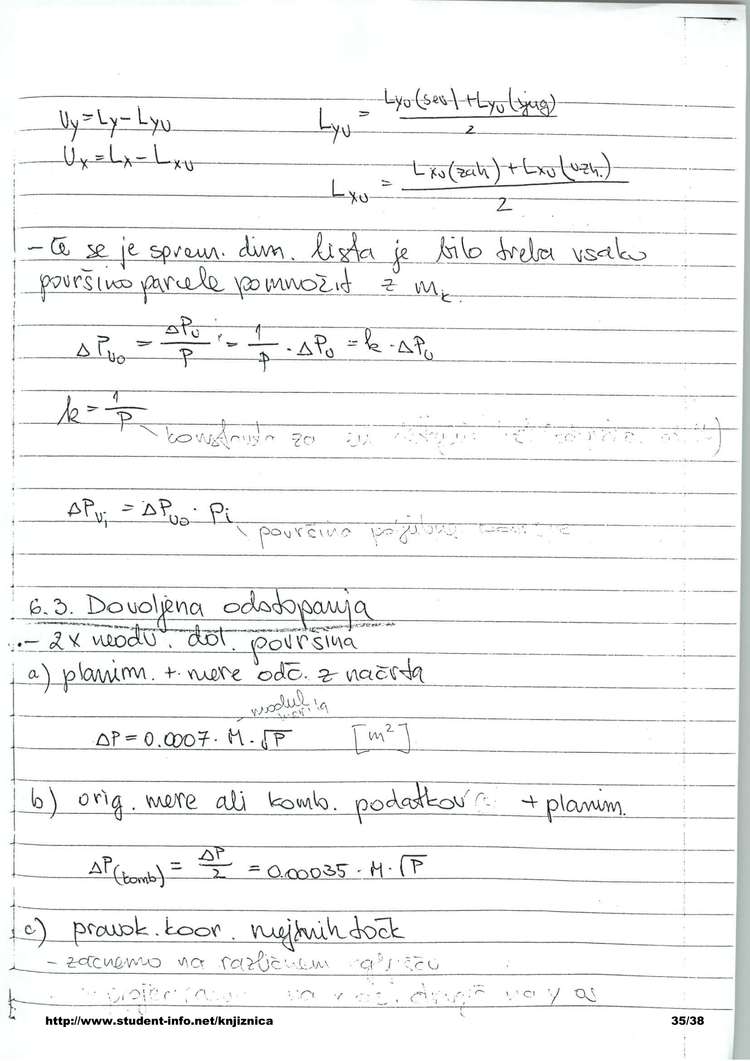 Uy = Ly - Lyu    Lyu = (Lyu(sev) + Lyu(jug)) / 2
Ux = Lx - Lxu    Lxu = (Lxu(zah) + Lxu(vzh.)) / 2
- Če se je sprem. dim. lista je bilo treba vsako
površino parcele pomnožit z mk.
ΔPuo = ΔPu / P = 1/P · ΔPu = k · ΔPu
k = 1/P
konstanta za
ΔPvi = ΔPuo · Pi
površina poljubne
6.3. Dovoljena odstopanja
- 2x neodv. dol. površina
a) planim. + mere odč. z načrta
modul merila
ΔP = 0.0007 · M · √P [m²]
b) orig. mere ali komb. podatkov + planim.
ΔP(komb) = ΔP/2 = 0.00035 · M · √P
c) pravok. koor. mejnih točk
- začnemo na različnem
na y os
http://www.student-info.net/knjiznica 35/38